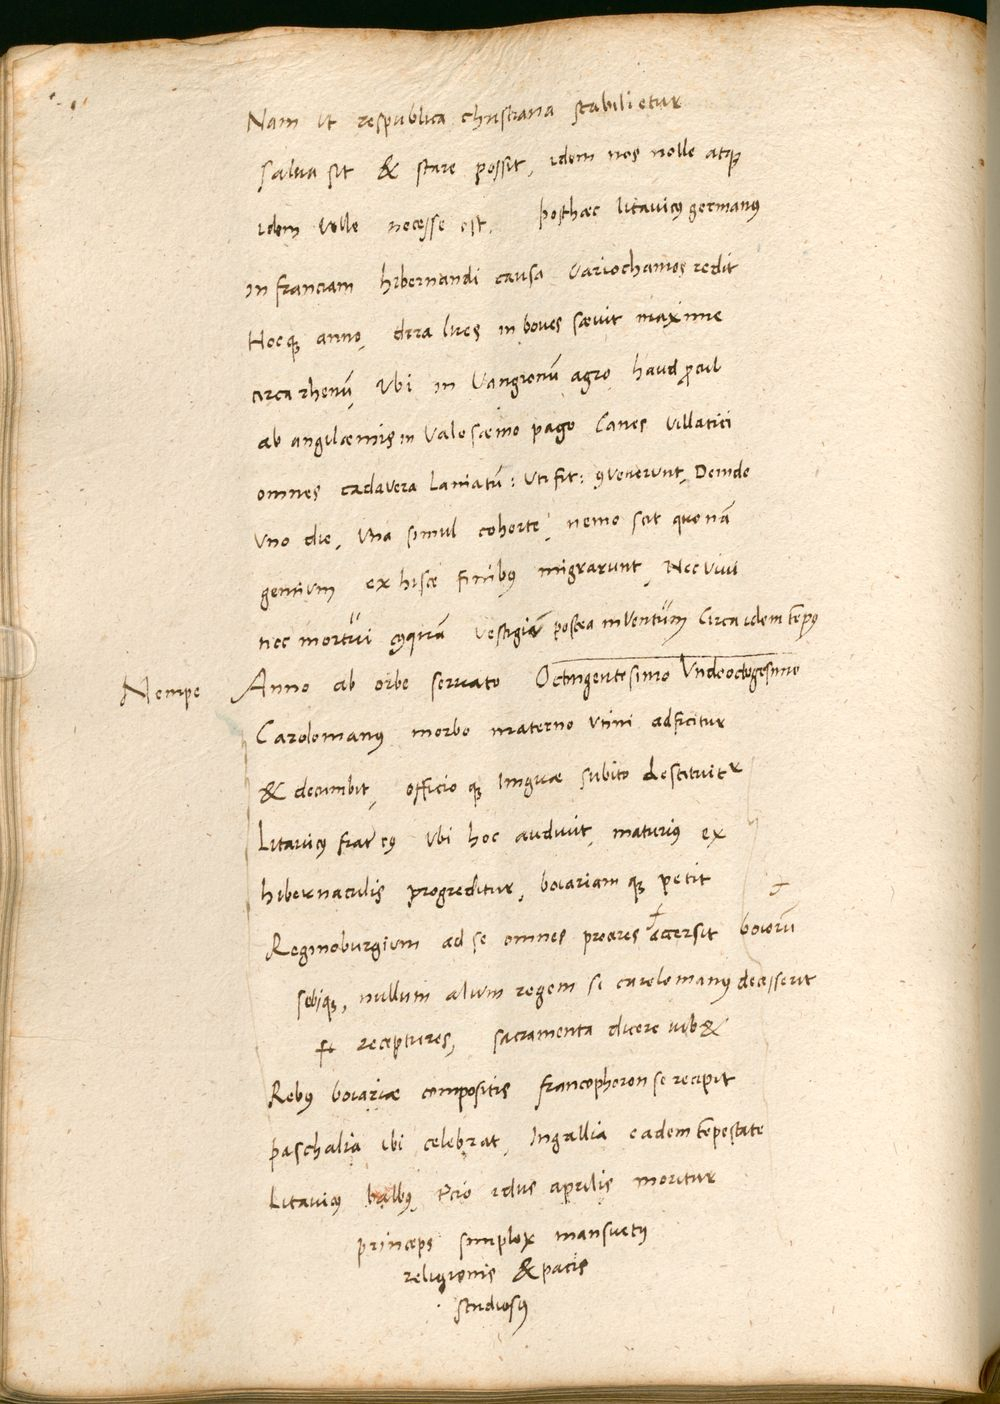 Nam ut respublica christiana stabilietur
salua sit & stare possit, idem nos nolle atqꝫ
idem velle necesse est. posthæc litauicꝰ germanꝰ
in franciam hibernandi causa Variochamos redit
Hocqꝫ anno, dira lues in boues sæuit maxime
circa rhenū, Vbi in Vangionū agro haud ꝓcul
ab angilæmis in pago Canes villatici
omnes cadavera laniatū : uti fit : ꝯvenerunt, Deinde
Vno die, Vna simul cohorte, nemo scit quonā
gentium ex hisce finibꝰ migrarunt, Nec viui
nec mortui cꝰquā vestigiū postea inventum Circa idem tēpꝰ
Nempe Anno ab orbe seruato Octingentesimo Vndeoctogesimo
Carolomanꝰ morbo materno Vtini adficitur
& decumbit, officio qꝫ linguæ subito destituitur
Litauicꝰ frater eꝰ Vbi hoc audiuit, maturiꝰ ex
hibernaculis progreditur, boiariamqꝫ petit
Reginoburgium ad se omnes proceres accersit boiorū
sibiqꝫ, nullum alium regem si carolomanꝰ decesserit
se recepturos, sacramenta dicere iub&
Rebꝰ boiariæ compositis francophoron se recipit
paschalia ibi celebrat, In gallia eadem tēpestate
Litauicꝰ balbꝰ, idus aprilis moritur
princeps simplex mansuetꝰ
religionis & pacis
studiosꝰ